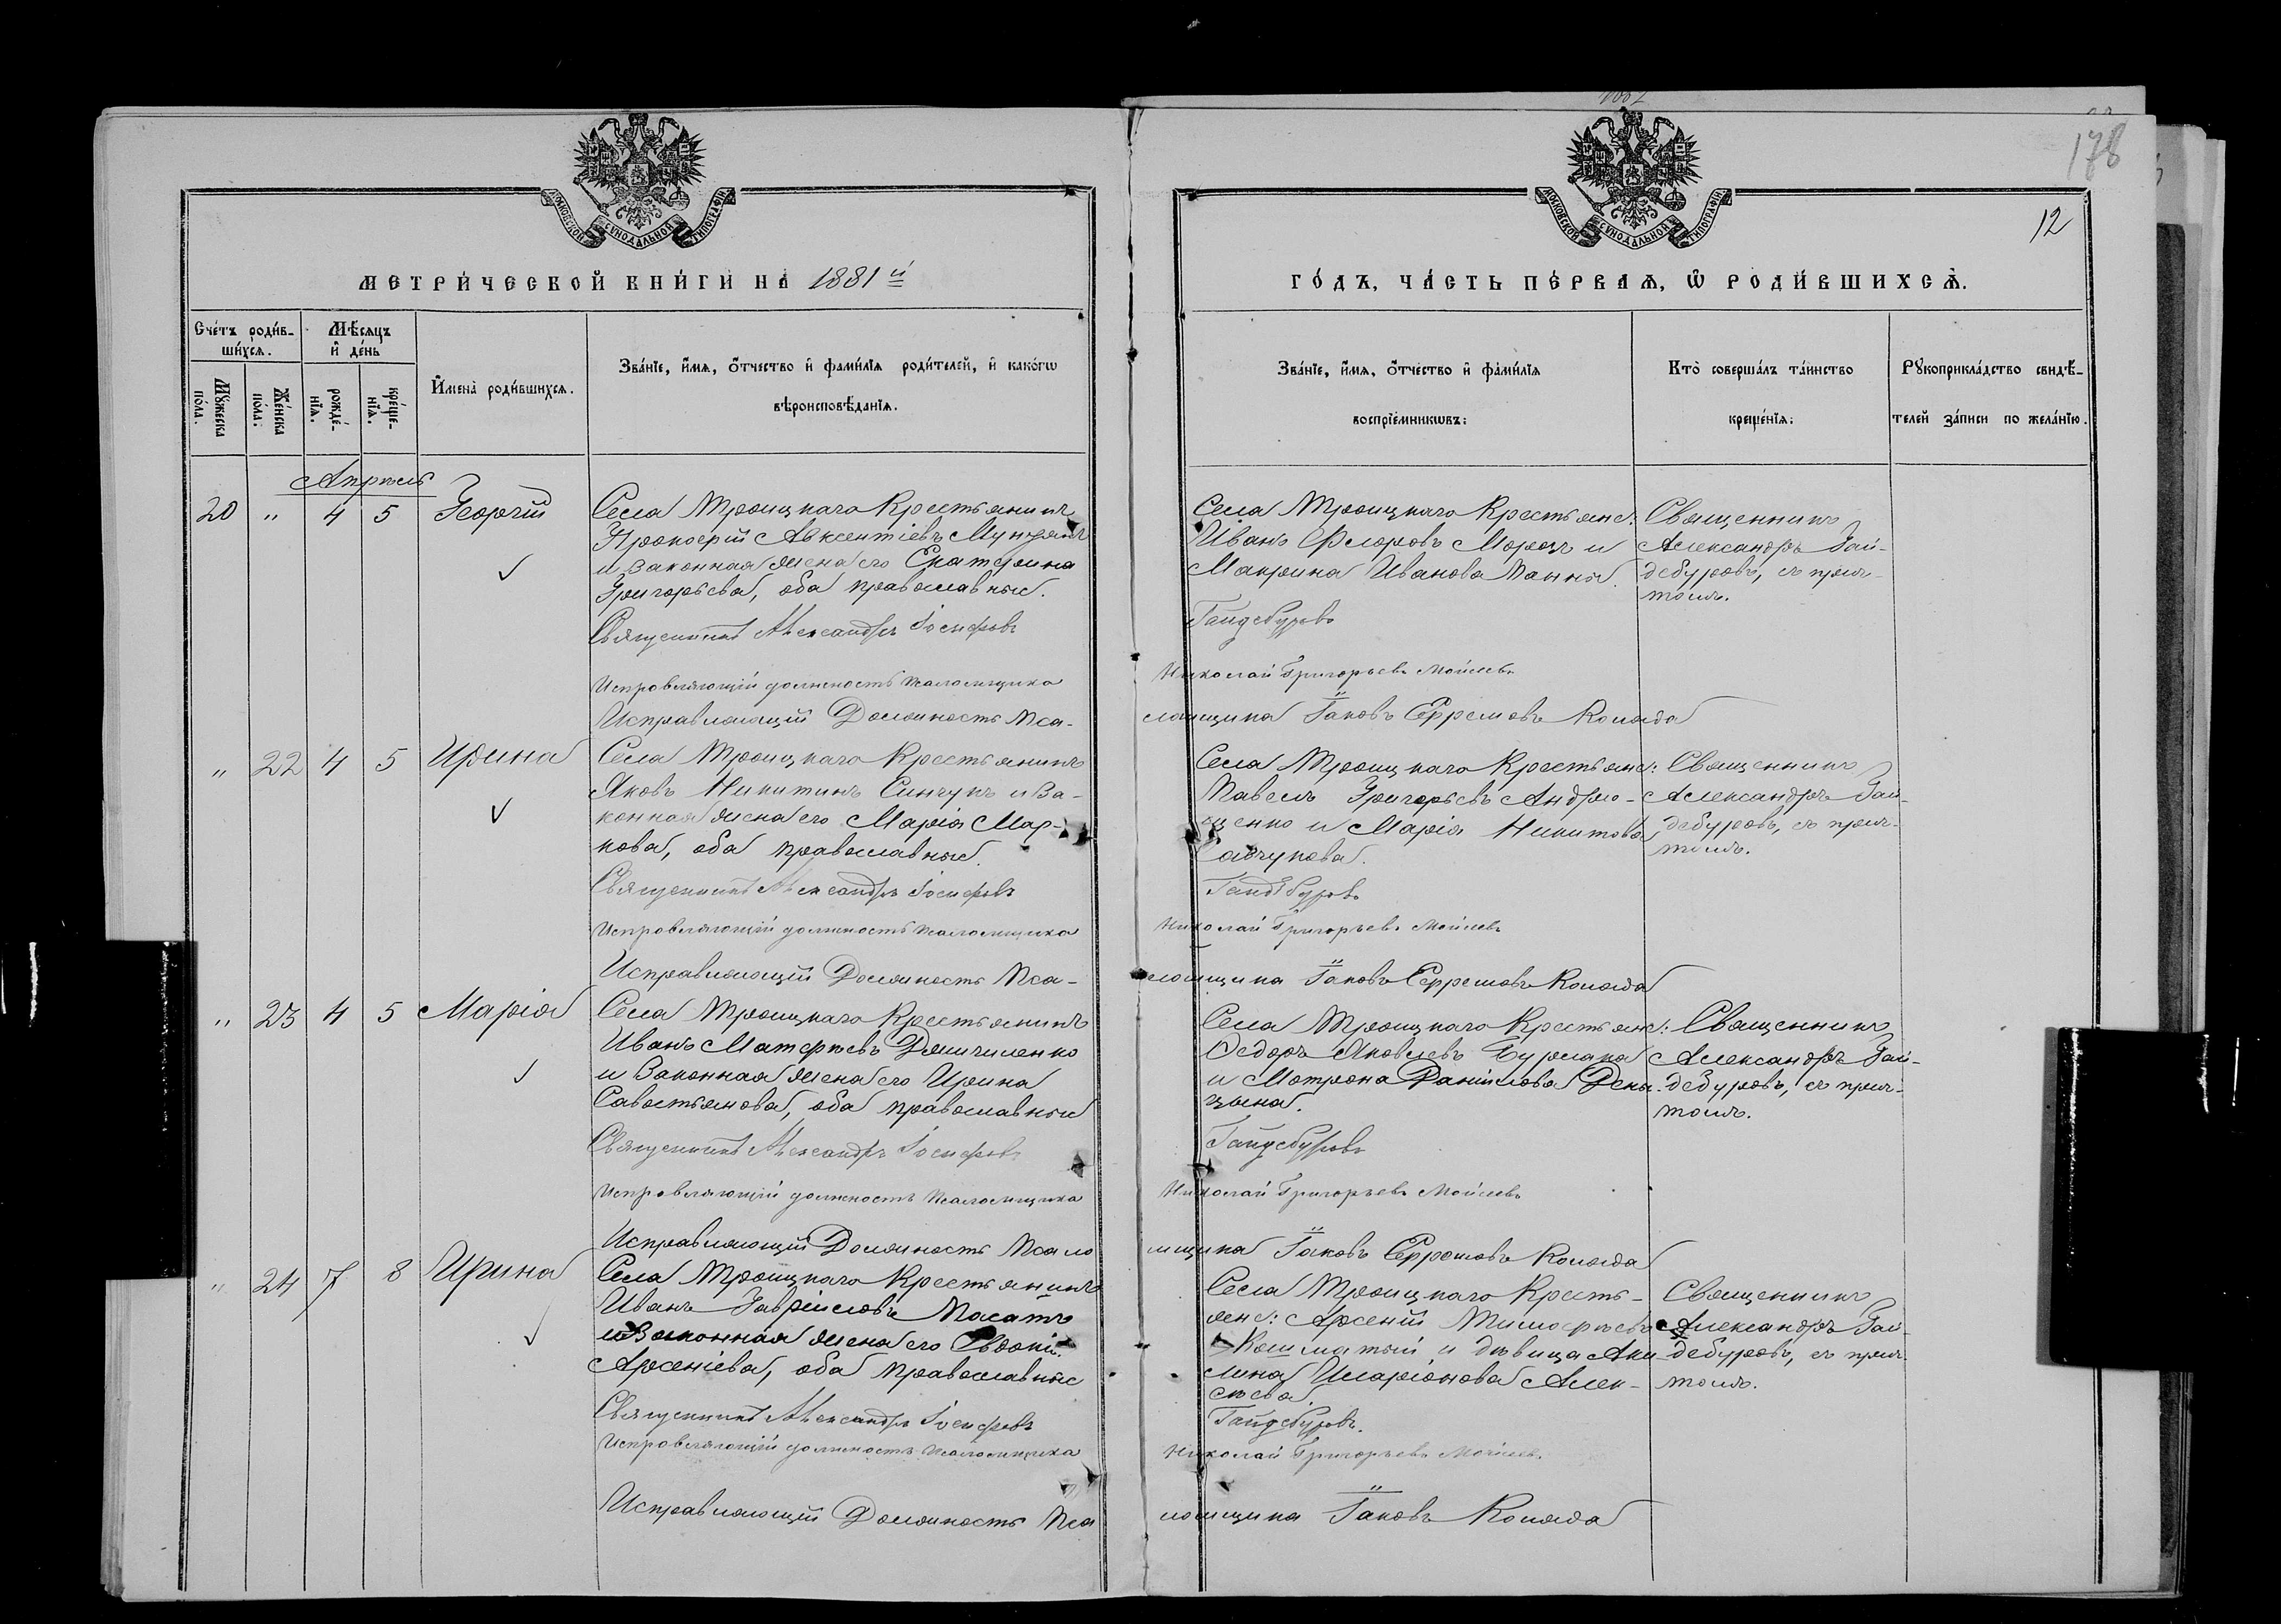 1881
178
МОСКОВСКОЙ СѴНОДАЛЬНОЙ ТИПОГРАФІИ
МОСКОВСКОЙ СѴНОДАЛЬНОЙ ТИПОГРАФІИ
12
МЕТРИ́ЧЕСКОЙ КНИ́ГИ НА 1881й
ГО́ДЪ, ЧА́СТЬ ПЕ́РВАѦ, Ѡ РОДИ́ВШИХСѦ.
Сче́тъ роди́в-
ши́хсѧ.
Мѣ́сѧцъ
и҆ де́нь
Мꙋ́жеска
по́ла.
Же́нска
по́ла.
рожде́-
нїѧ.
креще́-
нїѧ.
И҆мена̀ роди́вшихсѧ.
Зва́нїе, и҆́мѧ, ѻ҆́тчество и҆ фами́лїѧ роди́телей, и҆ како́гѡ
вѣроисповѣ́данїѧ.
Зва́нїе, и҆́мѧ, ѻ҆́тчество и҆ фами́лїѧ
воспрїе́мникѡвъ:
Кто̀ соверша́лъ та́инство
креще́нїѧ:
Рꙋкоприкла́дство свидѣ́-
телей за́писи по жела́нїю.
Апрѣль
20 " 4 5 Георгій
Села Троицкаго Крестьянинъ
Прокофій Авксентіевъ Мунтянъ
и Законная жена его Екатерина
Григорьева, оба православные.
Священникъ Александръ Іосифовъ
Исправляющій должность псаломщика
Исправляющій Должность Пса-
Села Троицкаго Крестьяне:
Иванъ Флоровъ Морозъ и
Макрина Иванова
Гайдебуровъ
Николай Григорьевъ Мойсеевъ
ломщика Іаковъ Ефремовъ Коляда
Священникъ
Александръ Гай-
дебуровъ, съ прич-
томъ.
" 22 4 5 Ирина
Села Троицкаго Крестьянинъ
Яковъ Никитинъ Синчукъ и За-
конная жена его Марія Мар-
кова, оба православные.
Священникъ Александръ Іосифовъ
Исправляющій должность псаломщика
Исправляющій Должность Пса-
Села Троицкаго Крестьяне:
Павелъ Григорьевъ Андрю-
щенко и Марія Никитова
Гайдебуровъ
Николай Григорьевъ Мойсеевъ
ломщика Іаковъ Ефремовъ Коляда
Священникъ
Александръ Гай-
дебуровъ, съ прич-
томъ.
" 23 4 5 Марія
Села Троицкаго Крестьянинъ
Иванъ Матфѣевъ
и Законная жена его Ирина
Савостьянова, оба православные
Священникъ Александръ Іосифовъ
Исправляющій должность псаломщика
Исправляющій Должность Псало
Села Троицкаго Крестьяне:
Ѳедоръ Яковлевъ Бурлака
и Матрона Даніилова
Гайдебуровъ
Николай Григорьевъ Мойсеевъ
мщика Іаковъ Ефремовъ Коляда
Священникъ
Александръ Гай-
дебуровъ, съ прич-
томъ.
" 24 7 8 Ирина
Села Троицкаго Крестьянинъ
Иванъ Гавріиловъ
и Законная жена его Евдокі
Арсеніева, оба православные
Священникъ Александръ Іосифовъ
Исправляющій должность псаломщика
Исправляющій Должность Пса
Села Троицкаго Кресть-
яне: Арсеній Тимофѣевъ
и дѣвица Аки-
лина Иларіонова Алек-
сѣева.
Гайдебуровъ.
Николай Григорьевъ Мойсеевъ
ломщика Іаковъ Коляда
Священникъ
Александръ Гай-
дебуровъ, съ прич-
томъ.